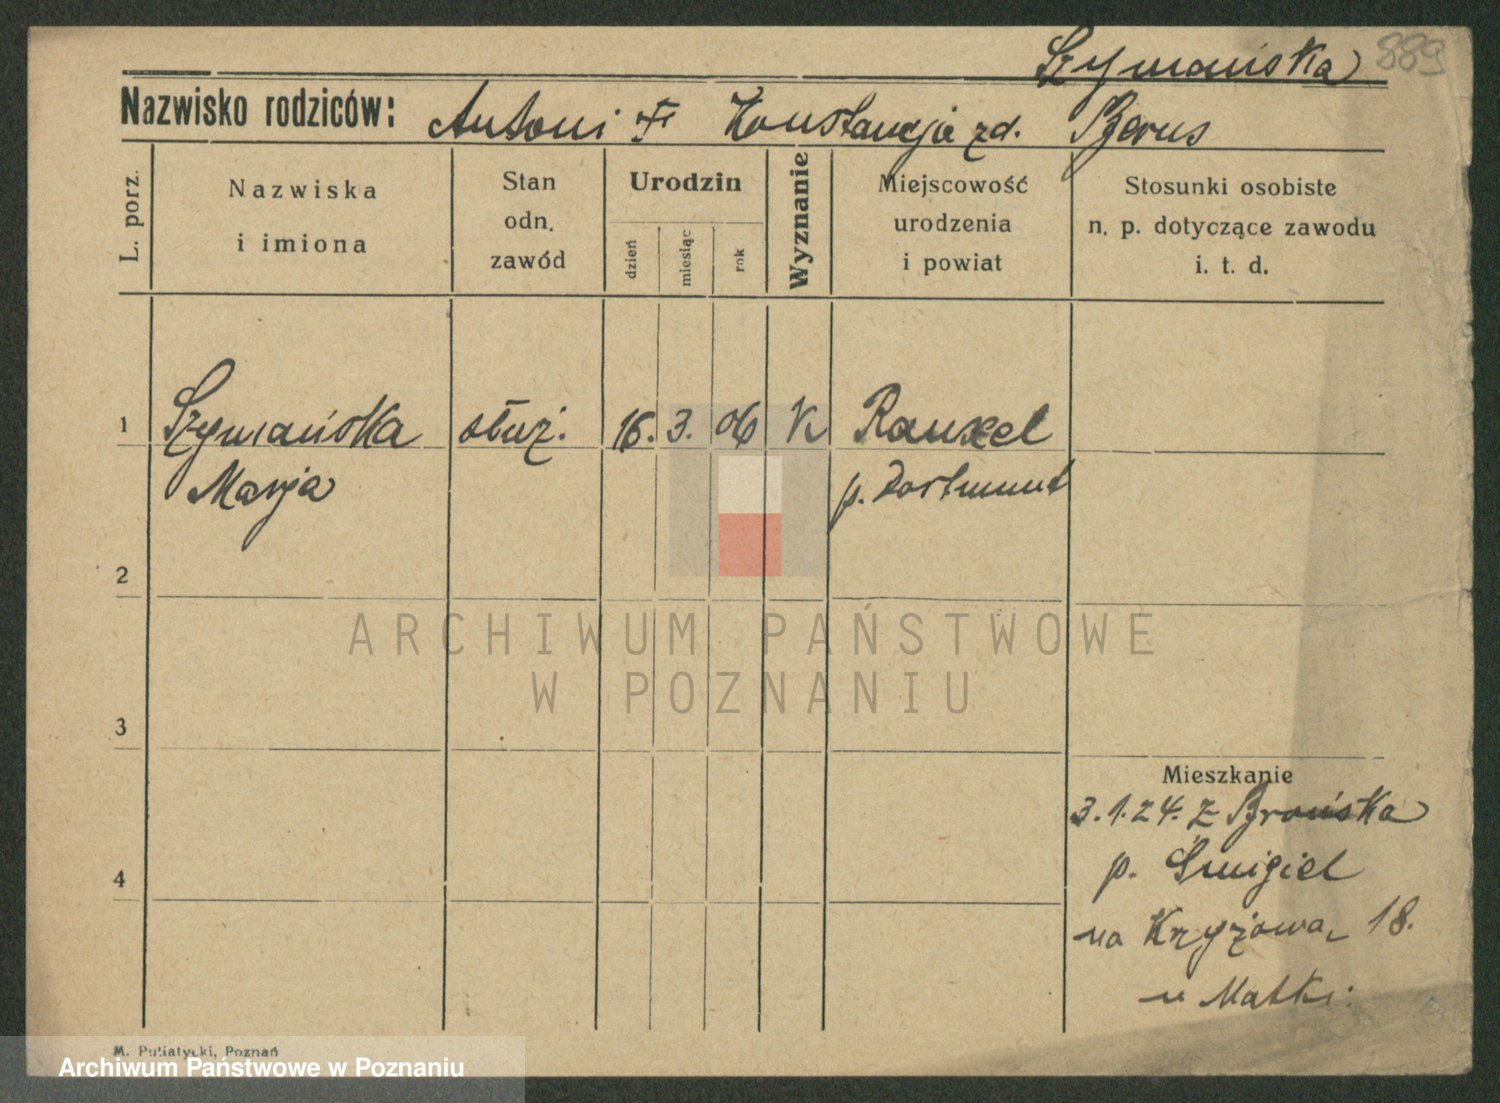 Szymańska 889
Nazwisko rodziców: Antoni Konstancja zd.
L. porz.
Nazwiska
i imiona
Stan
odn.
zawód
Urodzin
dzień
miesiąc
rok
Wyznanie
Miejscowość
urodzenia
i powiat
Stosunki osobiste
n. p. dotyczące zawodu
i. t. d.
1 Szymańska służ. 16. 3. 06 K Rauxel
Marja p. Dortmunt
2
ARCHIWUM PAŃSTWOWE
W POZNANIU
3
Mieszkanie
3.1.24. z Brońska
4 p. Śmigiel
na Krzyżową 18.
u Matki.
M. Putiatycki, Poznań
Archiwum Państwowe w Poznaniu